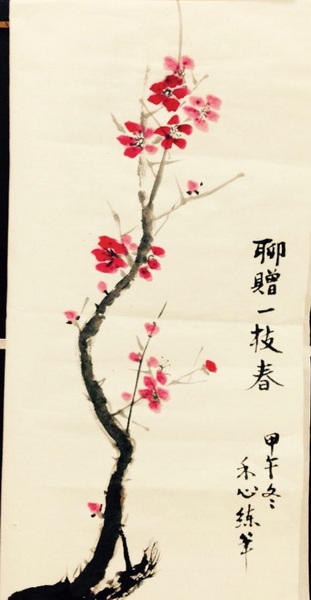 聊贈一枝春
甲午冬
禾心练笔